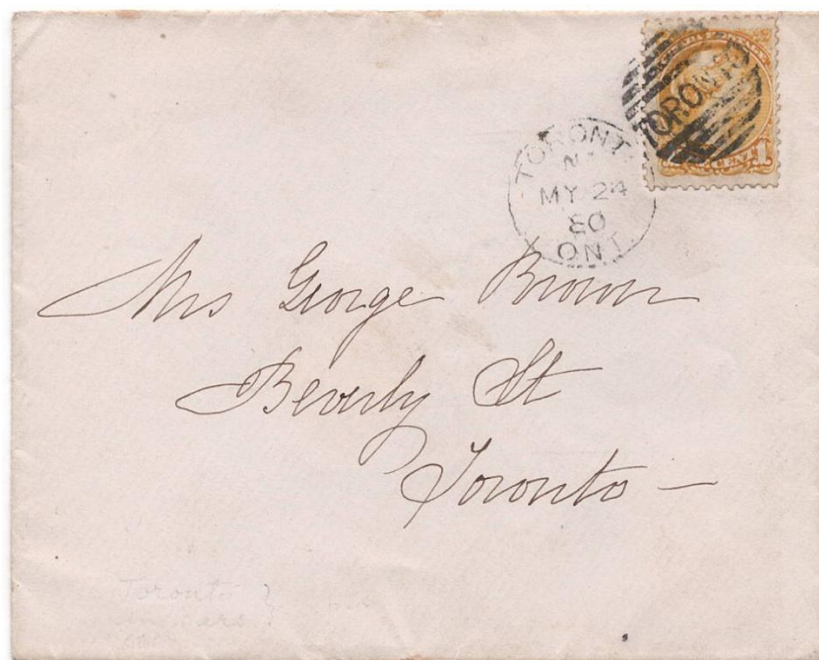 TORONTO
CENT 1
TORONT
MY 24
80
ONT.
Mrs George Brown
Beverly St
Toronto —
Toronto